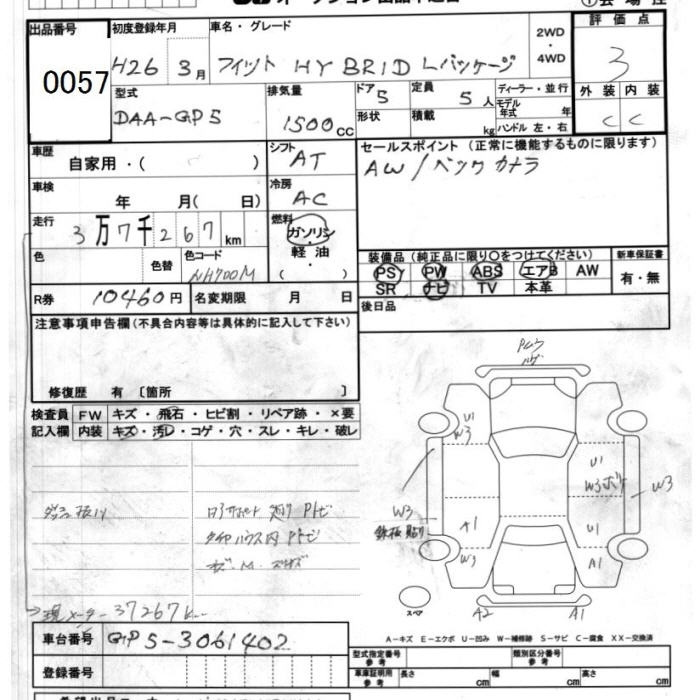 出品番号
0057
初度登録年月
H26 3月
車名・グレード
フィット HYBRID Lパッケージ
2WD
・
4WD
評価点
3
外装 内装
C C
型式
DAA-GP5
排気量
1500cc
ドア 5
定員 5人
形状
積載 kg
ディーラー・並行
モデル年式 年
ハンドル 左・右
車歴
自家用・( )
シフト
AT
セールスポイント (正常に機能するものに限ります)
AW/バックカメラ
車検
年 月( 日)
冷房
AC
走行
3万7千267km
燃料
ガソリン
・
軽油
( )
色
色替
色コード
NH700M
装備品 (純正品に限り○をつけてください)
PS PW ABS エアB AW
SR ナビ TV 本革
新車保証書
有・無
R券 10460円
名変期限 月 日
後日品
注意事項申告欄(不具合内容等は具体的に記入して下さい)
修復歴 有 〔箇所 〕
検査員記入欄
FW キズ・飛石・ヒビ割・リペア跡・×要
内装 キズ・汚レ・コゲ・穴・スレ・キレ・破レ
U1
W3
U1
W3ボケ
W3
W3
鉄板貼り
A1
U1
W3
A1
タイヤハウス内 Pトビ
スペア
A2
A1
現メーター 37267K
A-キズ E-エクボ U-凹み W-補修跡 S-サビ C-腐食 XX-交換済
車台番号 GP5-3061402
登録番号
型式指定番号 参考
類別区分番号 参考
車庫証明用 参考
長さ cm
幅 cm
高さ cm